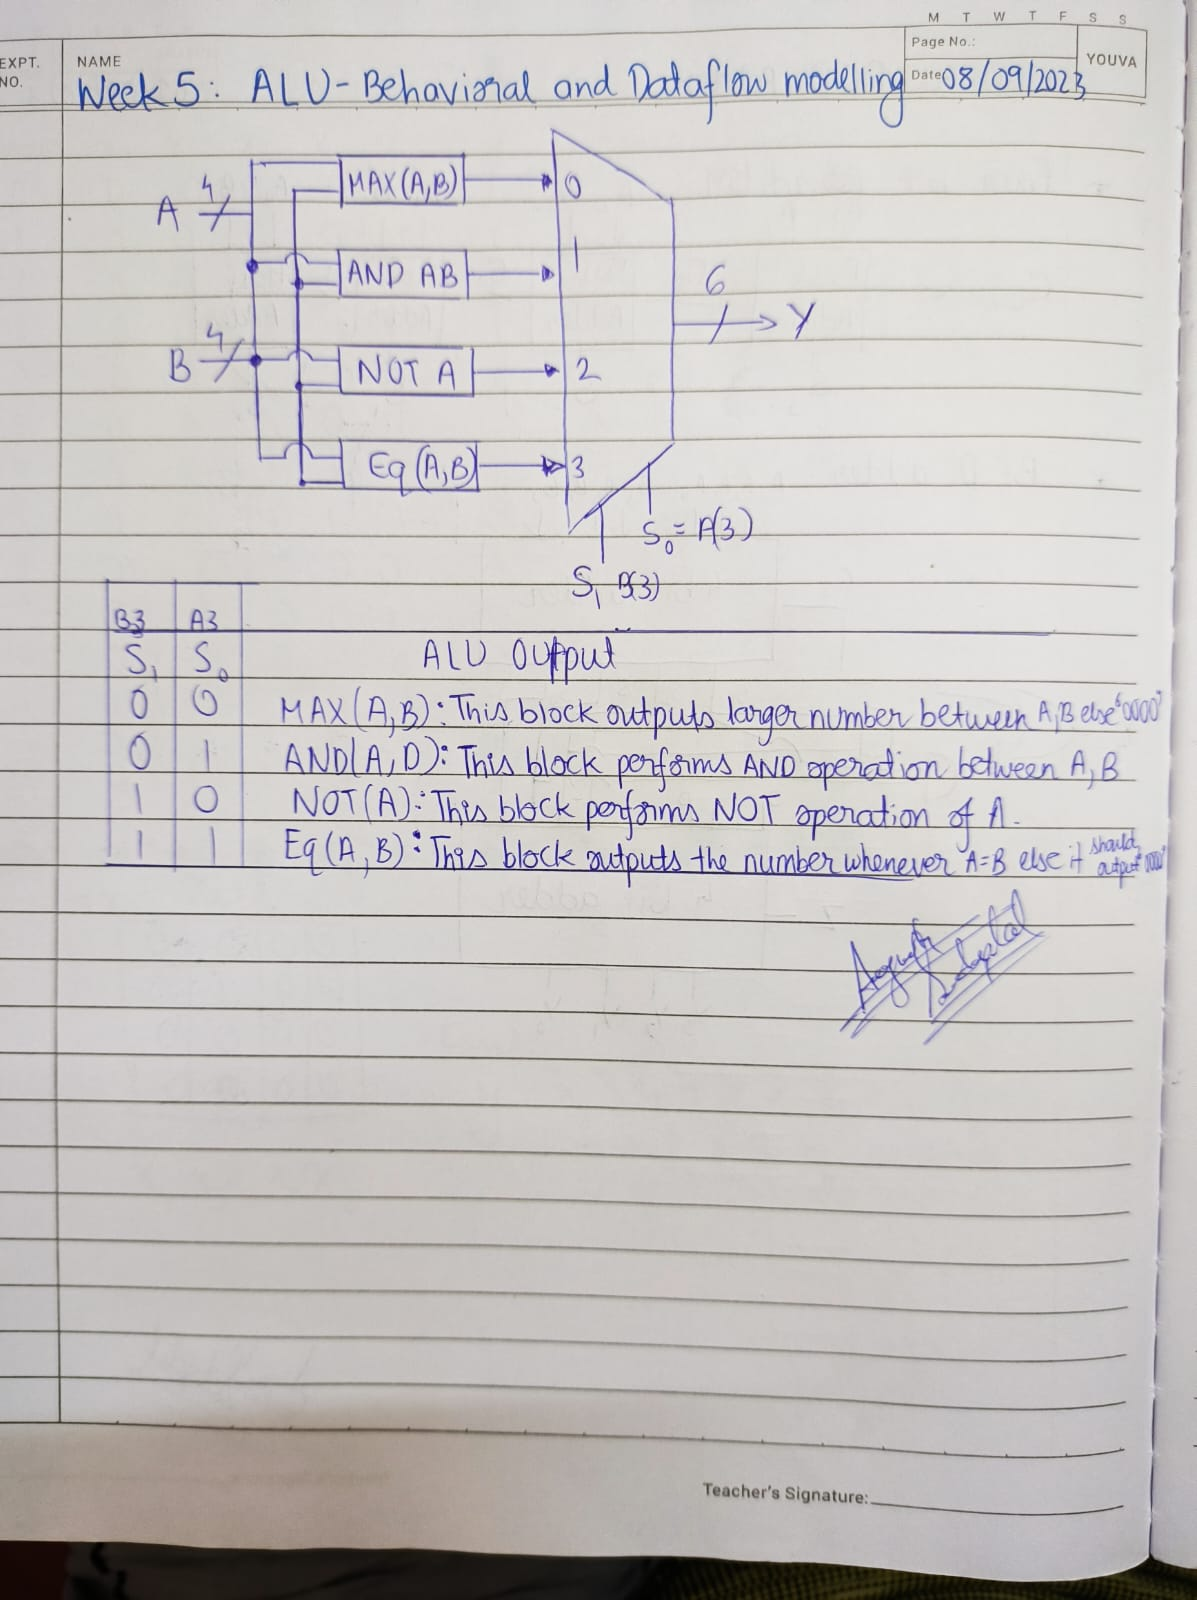 M T W T F S S
EXPT. NO.
NAME
Page No.:
YOUVA
Week 5: ALU - Behavioral and Dataflow modelling
Date 08/09/2023
MAX(A,B) 0
A 4
AND AB 1
6 Y
B 4
NOT A 2
Eq (A,B) 3
S0 = A(3)
S1 B(3)
B3 A3
S1 S0 ALU Output
0 0 MAX(A,B): This block outputs larger number between A,B else "0000"
0 1 AND(A,D): This block performs AND operation between A,B
1 0 NOT(A): This block performs NOT operation of A.
1 1 Eq (A,B): This block outputs the number whenever A=B else it should output
Teacher's Signature: